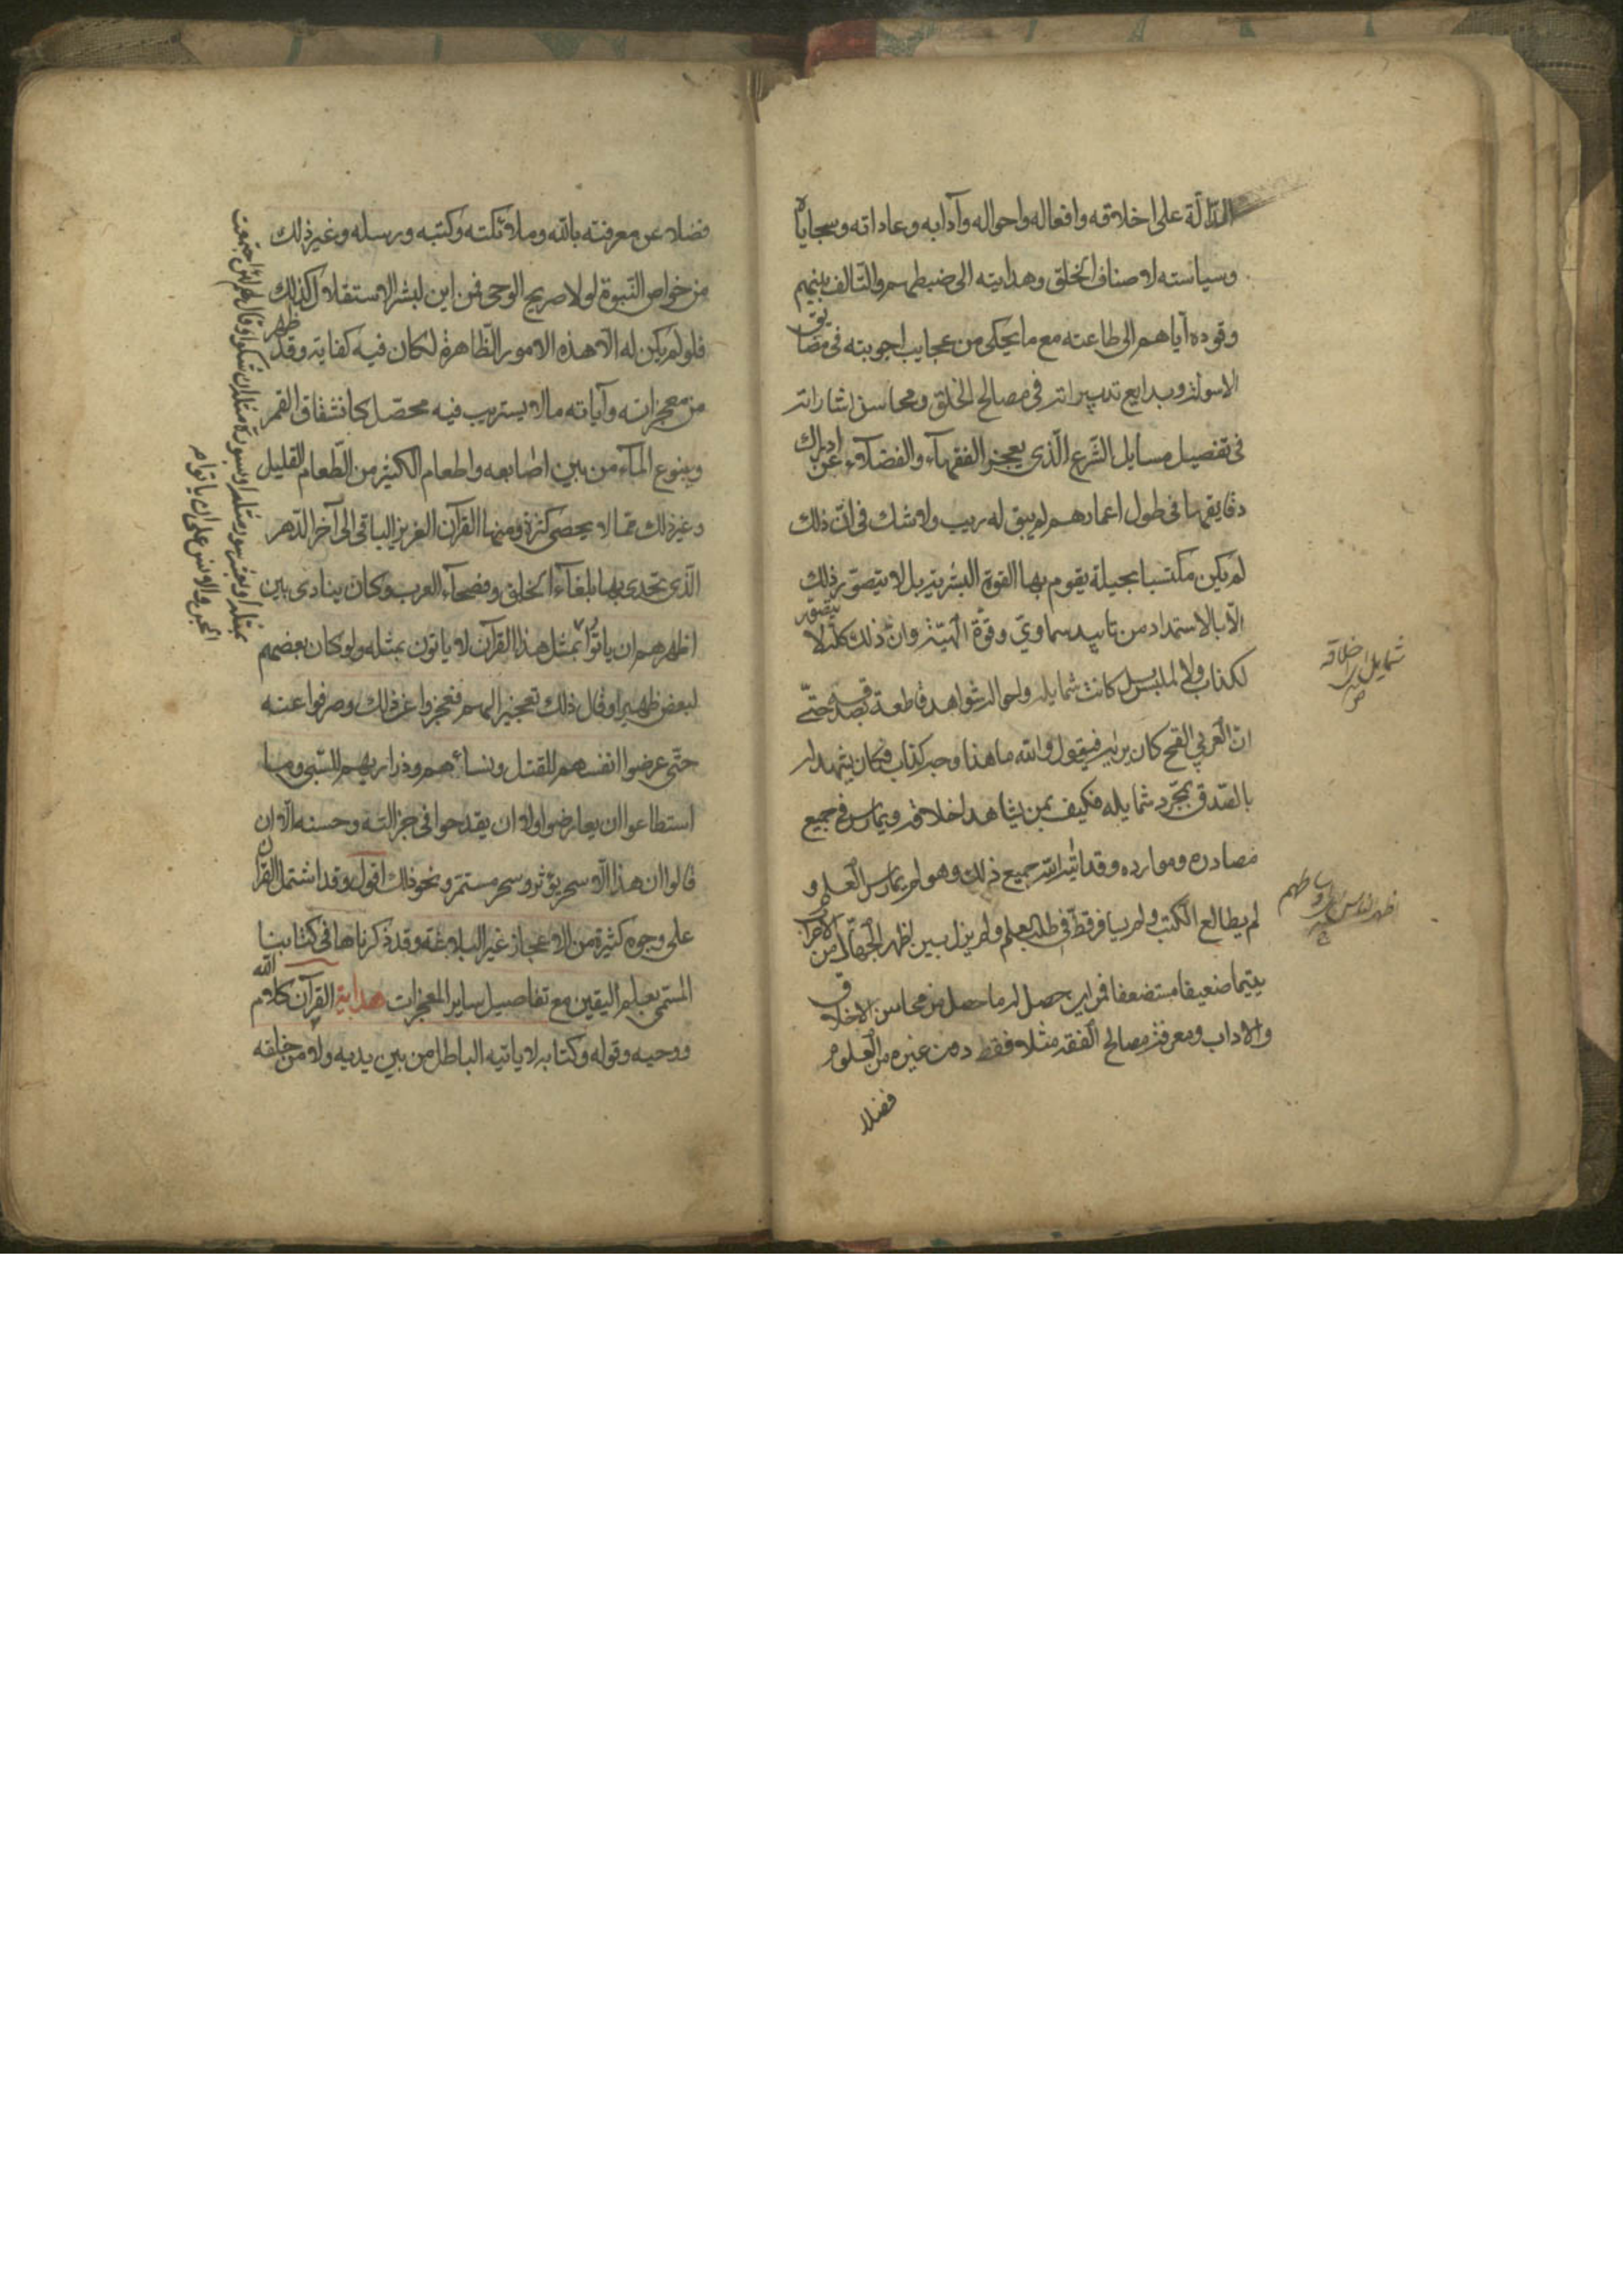 الدّالّة على اخلاقه وافعاله واحواله وآدابه وعاداته وسجاياه
وسياسته لاصناف الخلق وهدايته الى ضبطهم والتالف بينهم
وقوده اياهم الى طاعته مع ما يحكى من عجايب اجوبته فى مضايق
الاسولة وبدايع تدبيراته فى مصالح الخلق ومحاسن اشاراته
فى تفصيل مسايل الشرع الّذى يعجز الفقهآء والفضلآء عن ادراك
دقايقها فى طول اعمارهم لم يبق له ريب ولا شك فى انّ ذلك
لم يكن مكتسبا بحيلة يقوم بها القوة البشرية بل لا يتصوّر ذلك
الّا بالاستمداد من تاييد سماويّ وقوّة الهيّة وانّ ذلك كله لا يتصوّر
لكذاب ولا لملبس بل كانت شمايله واحواله شواهد قاطعة بصدقه حتّى
انّ العربي القح كان يراه فيقول والله ما هذا وجه كذاب فكان يشهد له
بالصّدق بمجّرد شمايله فكيف بمن يشاهد اخلاقه ويمارس فى جميع
مصادره وموارده وقد اتيه الله جميع ذلك وهو لم يمارس العلم و
لم يطالع الكتب ولم يسافر قطّ فى طلب علم ولم يزل بين اظهر الجهّال من الاعراب
يتيما ضعيفا مستضعفا فمن اين حصل له ما حصل من محاسن الاخلاق
والاداب ومعرفة مصالح الفقه مثلا فقط دون غيره من العلوم
فضلا
شمايل اى اخلاقه
اظهر الناس اى اوساطهم
فضلا عن معرفته بالله وملائكته وكتبه ورسله وغير ذلك
من خواص النّبوة لولا صريح الوحى فمن اين لبشر الاستقلال كذلك
فلو لم يكن له الّا هذه الامور الظّاهرة لكان فيه كفاية وقد ظهر
من معجزاته وآياته ما لا يستريب فيه محصّل كانشقاق القمر
وينبوع المآء من بين اصابعه واطعام الكثير من الطّعام القليل
وغير ذلك ممّا لا يحصى كثرة ومنها القرآن العزيز الباقى الى آخر الدّهر
الّذى تحدى بها بلغآء الخلق وفصحآء العرب وكان ينادى بين
اظهرهم ان ياتوا بمثل هذا القرآن لا ياتون بمثله ولو كان بعضهم
لبعض ظهيرا وقال ذلك تعجيز الهم فعجزوا عن ذلك وصرفوا عنه
حتّى عرضوا انفسهم للقتل ونسائهم وذراريهم للسّبى وما
استطاعوا ان يعارضوا ولا ان يقدحوا فى جزالته وحسنه الّا ان
قالوا ان هذا الّا سحر يؤثر وسحر مستمرّ ونحو ذلك اقول وقد اشتمل القرآن
على وجوه كثيرة من الاعجاز غير البلاغة وقد ذكرناها فى كتابنا
المسّمى بعلم اليقين مع تفاصيل ساير المعجزات هداية القرآن كلام الله
ووحيه وقوله وكتابه لا ياتيه الباطل من بين يديه ولا من خلفه
بمثله او بعشر سور مثله او بسورة مثله ان شكوا وقال لهم لئن اجتمعت
الجن والانس على ان ياتوا م